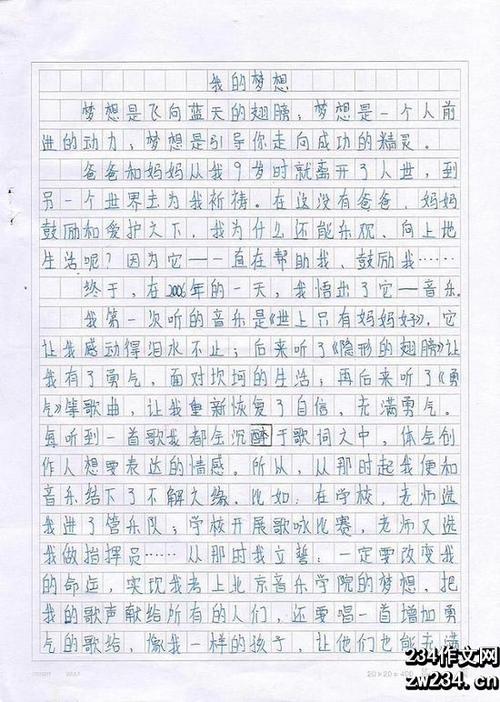 我的梦想
梦想是飞向蓝天的翅膀；梦想是一个人前
进的动力；梦想是引导你走向成功的精灵。
爸爸和妈妈从我9岁时就离开了人世，到
另一个世界去为我祈祷。在这没有爸爸、妈妈
鼓励和爱护之下，我为什么还能乐观、向上地
生活呢？因为它一一直在帮助我、鼓励我……
终于，在2006年的一天，我悟出了它—音乐。
我第一次听的音乐是《世上只有妈妈好》，它
让我感动得泪水不止；后来听了《隐形的翅膀》让
我有了勇气，面对坎坷的生活；再后来听了《勇
气》等歌曲，让我重新恢复了自信，充满勇气。
每听到一首歌我都会沉醉于歌词文中，体会创
作人想要表达的情感。所以，从那时起我便和
音乐结下了不解文缘。比如：在学校，老师选
我进了管乐队；学校开展歌咏比赛，老师又选
我做指挥员……从那时我立誓：一定要改变我
的命运，实现我考上北京音乐学院的梦想，把
我的歌声献给所有的人们，还要唱一首增加勇
气的歌给，像我一样的孩子，让他们也能充满
20×20=400
234作文网
zw234.cn